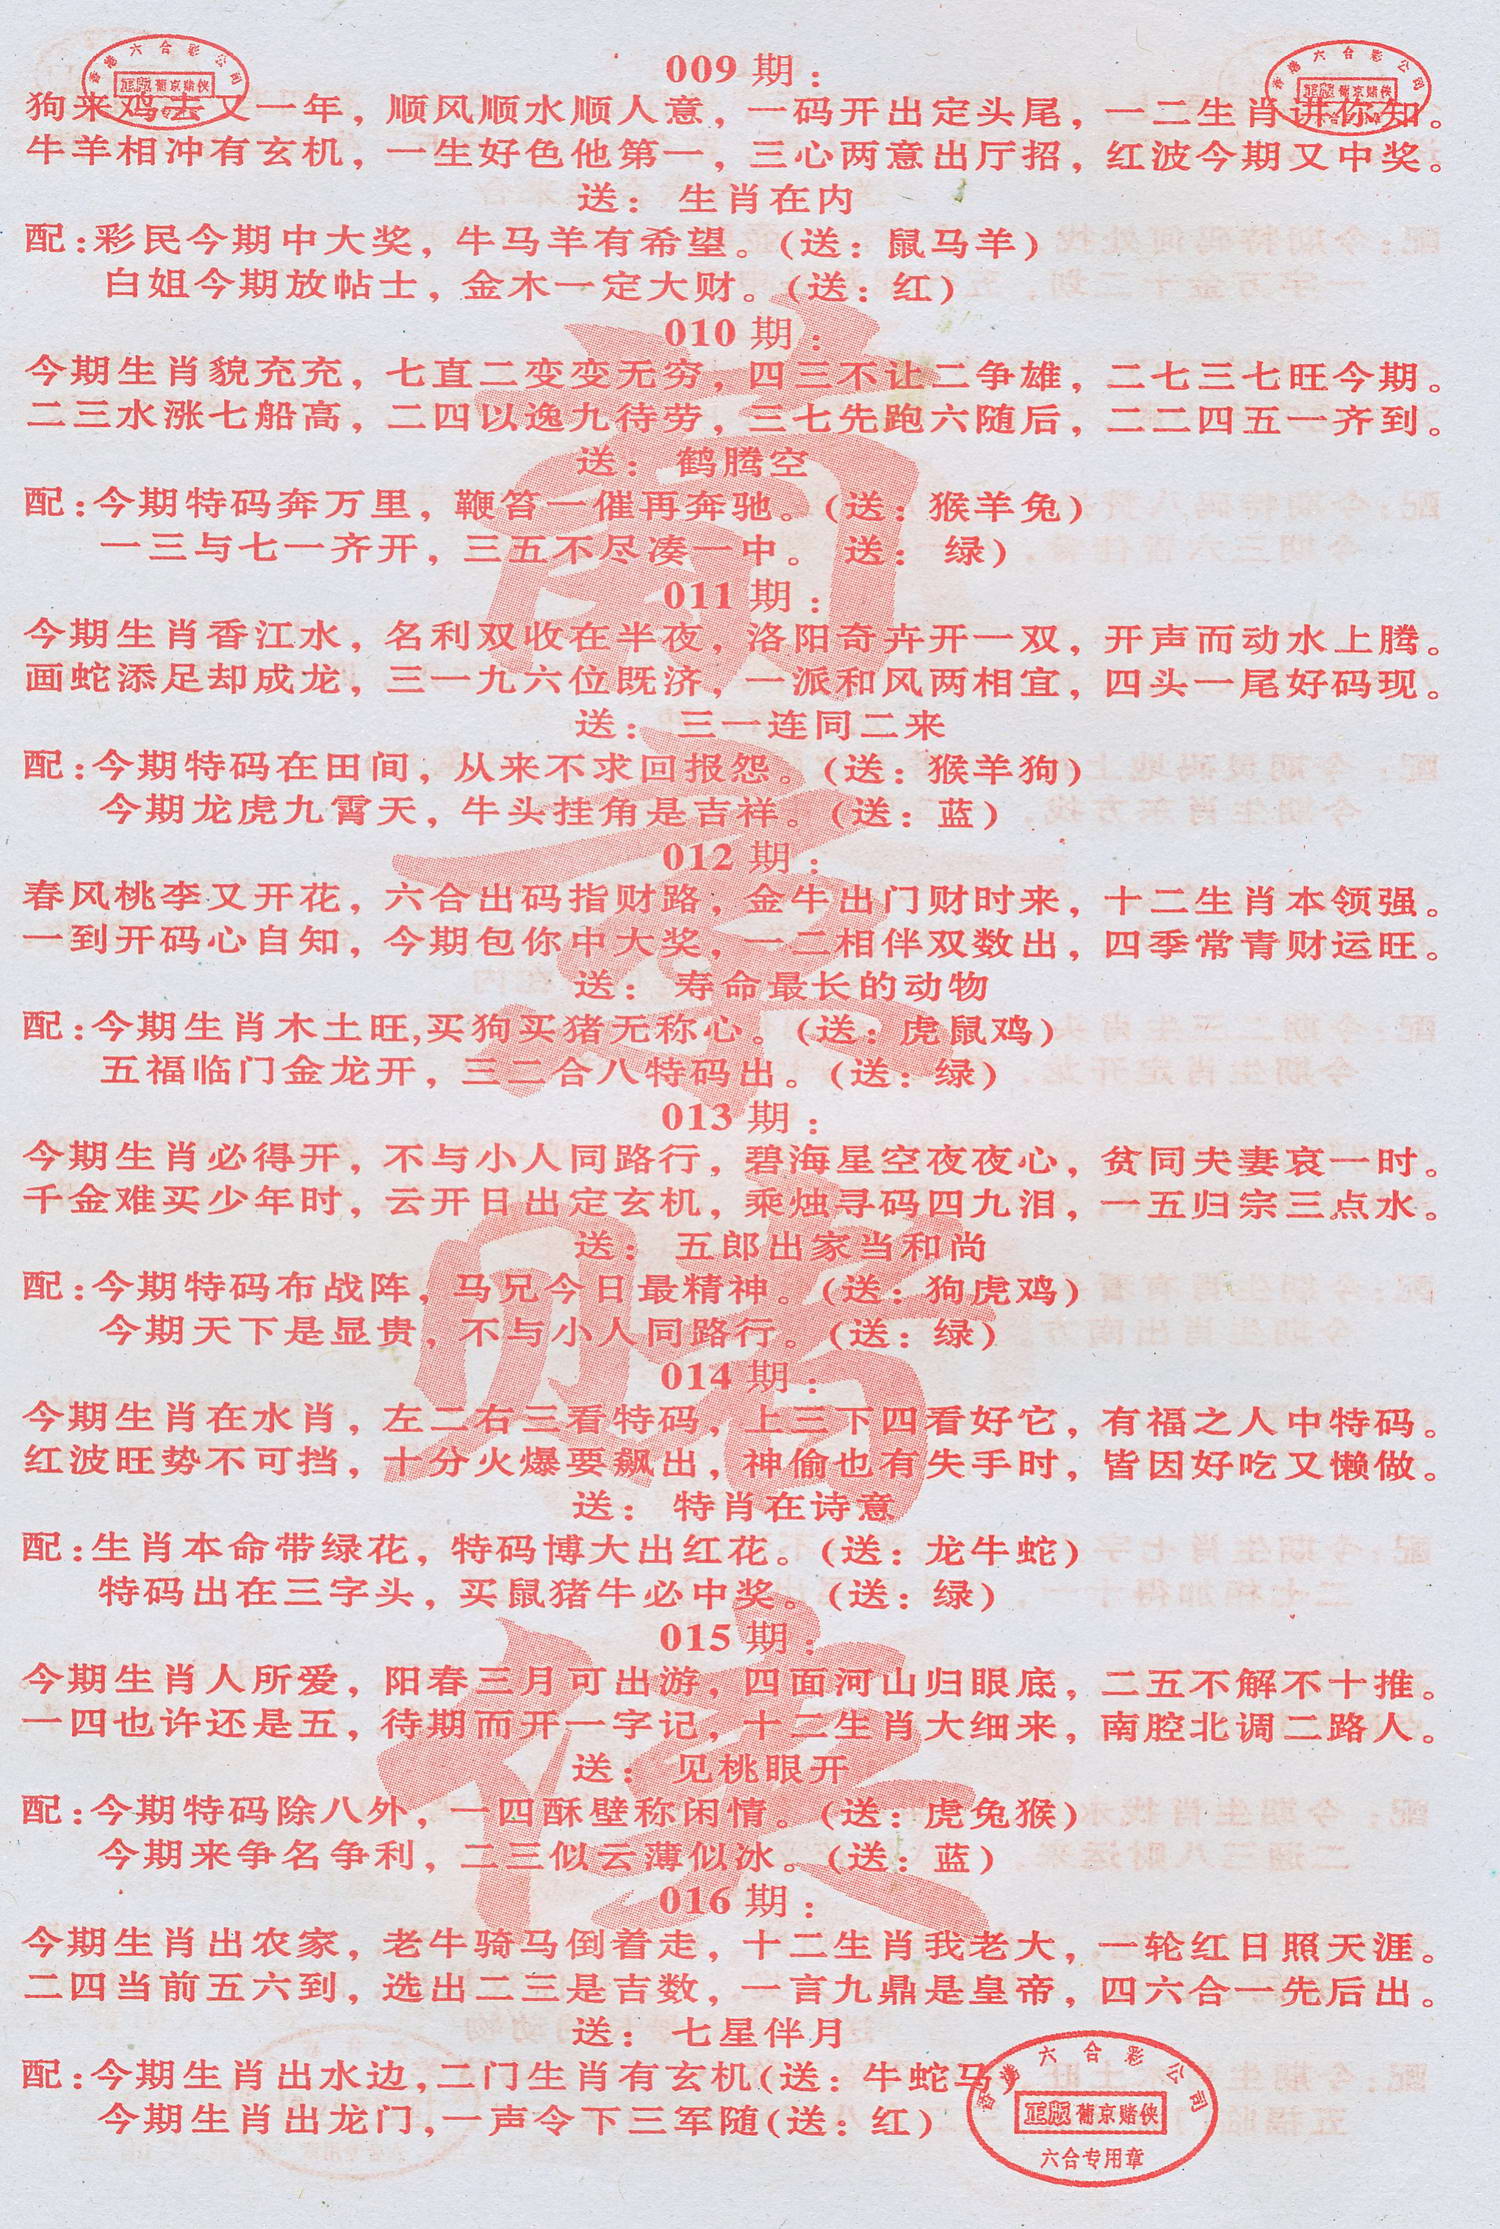 香港六合彩公司
正版 葡京赌侠
香港六合彩公司
正版 葡京赌侠
009期：
狗来鸡去又一年，顺风顺水顺人意，一码开出定头尾，一二生肖讲你知。
牛羊相冲有玄机，一生好色他第一，三心两意出厅招，红波今期又中奖。
送：生肖在内
配：彩民今期中大奖，牛马羊有希望。（送：鼠马羊）
白姐今期放帖士，金木一定大财。（送：红）
010期：
今期生肖貌充充，七直二变变无穷，四三不让二争雄，二七三七旺今期。
二三水涨七船高，二四以逸九待劳，三七先跑六随后，二二四五一齐到。
送：鹤腾空
配：今期特码奔万里，鞭笞一催再奔驰。（送：猴羊兔）
一三与七一齐开，三五不尽凑一中。送：绿）
011期：
今期生肖香江水，名利双收在半夜，洛阳奇卉开一双，开声而动水上腾。
画蛇添足却成龙，三一九六位既济，一派和风两相宜，四头一尾好码现。
送：三一连同二来
配：今期特码在田间，从来不求回报怨。（送：猴羊狗）
今期龙虎九霄天，牛头挂角是吉祥。（送：蓝）
012期：
春风桃李又开花，六合出码指财路，金牛出门财时来，十二生肖本领强。
一到开码心自知，今期包你中大奖，一二相伴双数出，四季常青财运旺。
送：寿命最长的动物
配：今期生肖木土旺,买狗买猪无称心。（送：虎鼠鸡）
五福临门金龙开，三二合八特码出。（送：绿）
013期：
今期生肖必得开，不与小人同路行，碧海星空夜夜心，贫同夫妻哀一时。
千金难买少年时，云开日出定玄机，乘烛寻码四九泪，一五归宗三点水。
送：五郎出家当和尚
配：今期特码布战阵，马兄今日最精神。（送：狗虎鸡）
今期天下是显贵，不与小人同路行。（送：绿）
014期：
今期生肖在水肖，左二右三看特码，上三下四看好它，有福之人中特码。
红波旺势不可挡，十分火爆要飙出，神偷也有失手时，皆因好吃又懒做。
送：特肖在诗意
配：生肖本命带绿花，特码博大出红花。（送：龙牛蛇）
特码出在三字头，买鼠猪牛必中奖。（送：绿）
015期：
今期生肖人所爱，阳春三月可出游，四面河山归眼底，二五不解不十推。
一四也许还是五，待期而开一字记，十二生肖大细来，南腔北调二路人。
送：见桃眼开
配：今期特码除八外，一四酥壁称闲情。（送：虎兔猴）
今期来争名争利，二三似云薄似冰。（送：蓝）
016期：
今期生肖出农家，老牛骑马倒着走，十二生肖我老大，一轮红日照天涯。
二四当前五六到，选出二三是吉数，一言九鼎是皇帝，四六合一先后出。
送：七星伴月
配：今期生肖出水边,二门生肖有玄机(送：牛蛇马)
今期生肖出龙门,一声令下三军随(送：红)
香港六合彩公司
正版 葡京赌侠
六合专用章
葡京赌侠